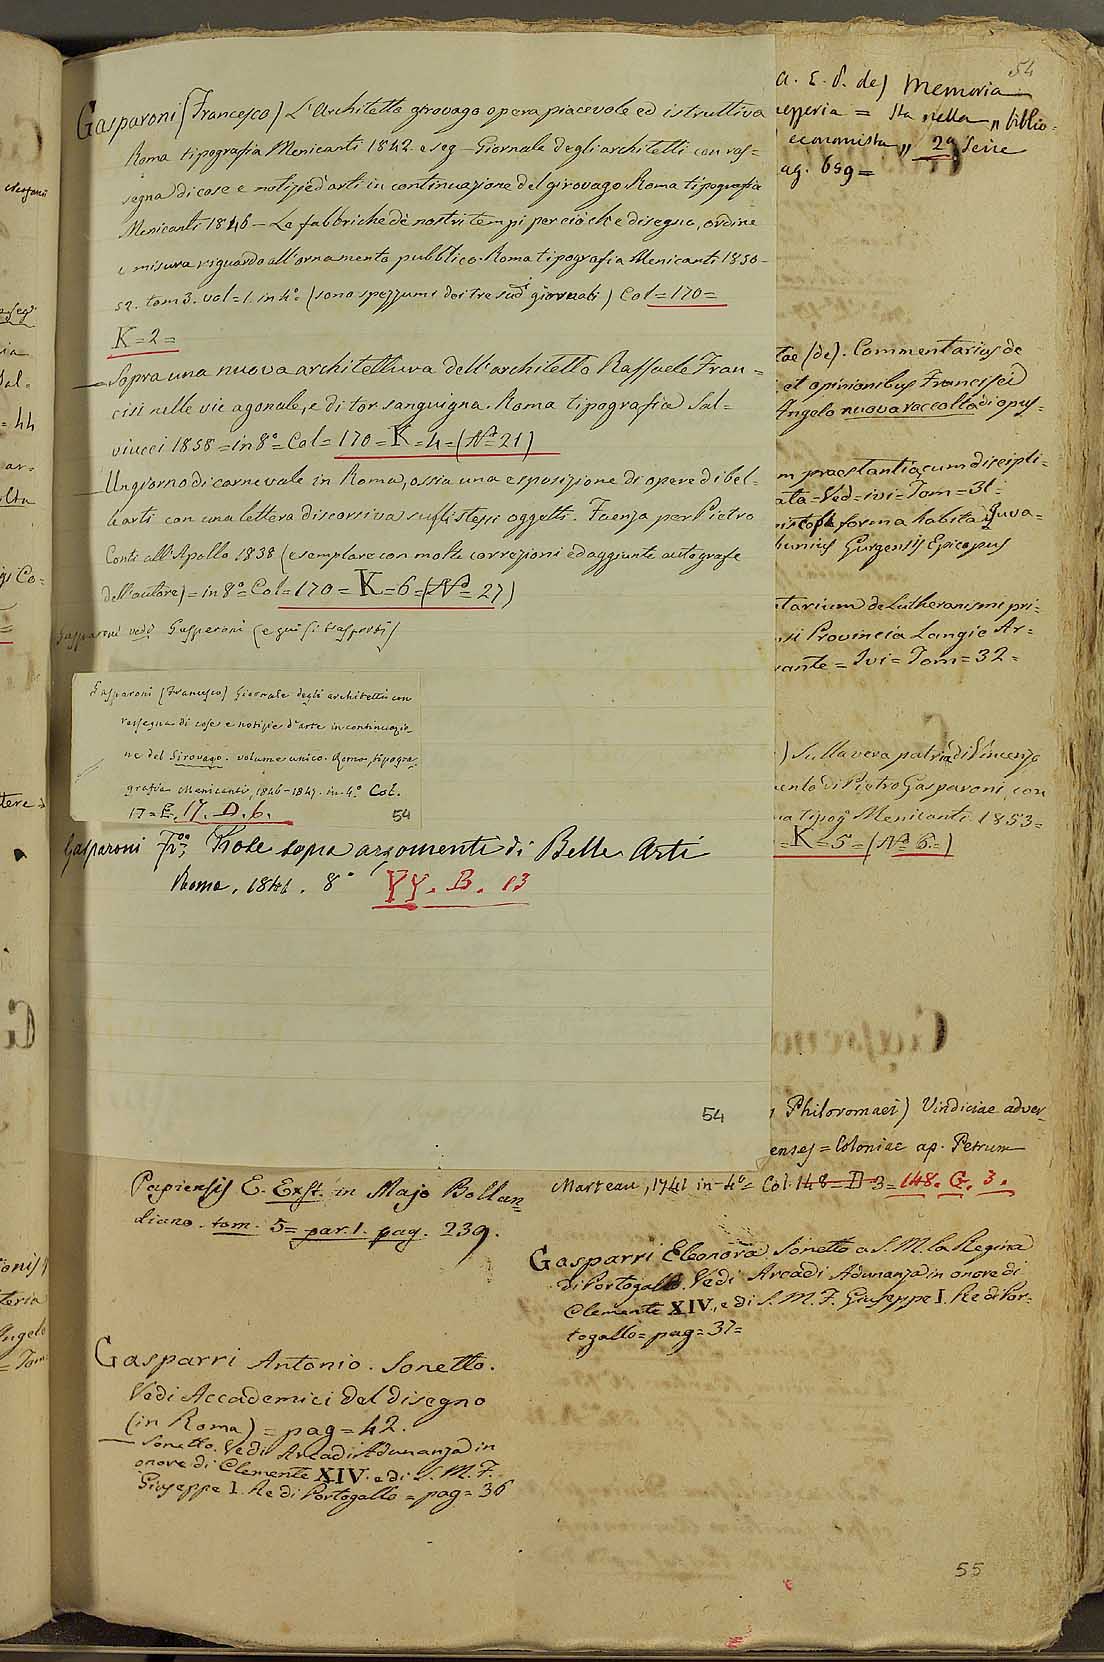 Gasparoni (Francesco) L'Architetto girovago opera piacevole ed istruttiva
Roma tipografia Menicanti 1842 e seg – Giornale degli architetti con ras=
segna di cose e notizie d'arti in continuazione del girovago Roma tipografia
Menicanti 1846 – Le fabbriche de nostri tempi per ciò ch'e disegno, ordine
e misura riguardo all'ornamento pubblico. Roma tipografia Menicanti 1850–
52. tom 3. vol = 1. in 4º. (sono spezzumi dei tre sudi giornali) Col = 170 =
K = 2 =
— Sopra una nuova architettura dell'architetto Raffaele Fran=
cisi nelle vie agonale, e di tor sanguigna. Roma tipografia Sal=
viucci 1858 = in 8º = Col = 170 = K = 4 = (Nº = 21)
— Un giorno di carnevale in Roma, ossia una esposizione di opere di bel=
le arti con una lettera discorsiva sugli stessi oggetti. Faenza per Pietro
Conti all'Apollo 1838 (esemplare con molte correzioni ed aggiunte autografe
dell'autore) = in 8º = Col = 170 = K = 6 = (Nº = 27)
Gasparoni vedi Gasperoni (e qui si trasporti)
Gasparoni (Francesco) Giornale degli architetti con
rassegna di cose e notizie d'arte in continuazio
ne del Girovago. volume unico. Roma, tipogra
grafia Menicanti, 1846-1847. in 4º. Col.
17 = E. 17. D. 6.
54
Gasparoni Frco; Prose sopra argomenti di Belle Arti
Roma, 1841. 8º YY. B. 13
54
Papiensis E. Exst. in Majo Bollan=
diano. tom. 5 = par. 1. pag. 239.
Gasparri Antonio. Sonetto.
Vedi Accademici del disegno
(in Roma) = pag = 42.
— Sonetto. Vedi Arcadi Adunanza in
onore di Clemente XIV. e di S. M. F.
Giuseppe I. Re di Portogallo = pag = 36
54
a. E. P. de) Memoria
= Sta nella „ biblio=
economista „ 2a Serie
ag. 659 =
tae (de). Commentarius de
et opinionibus Francisci
Angelo nuova raccolta di opus=
m praestantia cum discipli=
ata = Ved = ivi = Tom = 31 =
forma habita Juva=
Gurgensis Epicopus
ntarium de Lutheranismi pri=
Provincia Langio Ar=
vante = Ivi = Tom = 32 =
) Sulla vera patria di Vincenzo
mento di Pietro Gasparoni, con
ma tipog. Menicanti 1853 =
= K = 5 = (Nº 6. = )
Philoromaei) Vindiciae adver=
enses = Coloniae ap. Petrum
Marteau, 1741 in 4º = Col. 148 = D 3 = 148. G. 3.
Gasparri Eleonora Sonetto a S. M. la Regina
di Portogallo. Vedi Arcadi Adunanza in onore di
Clemente XIV., e di S. M. F. Giuseppe I. Re di Por=
togallo = pag = 37 =
55